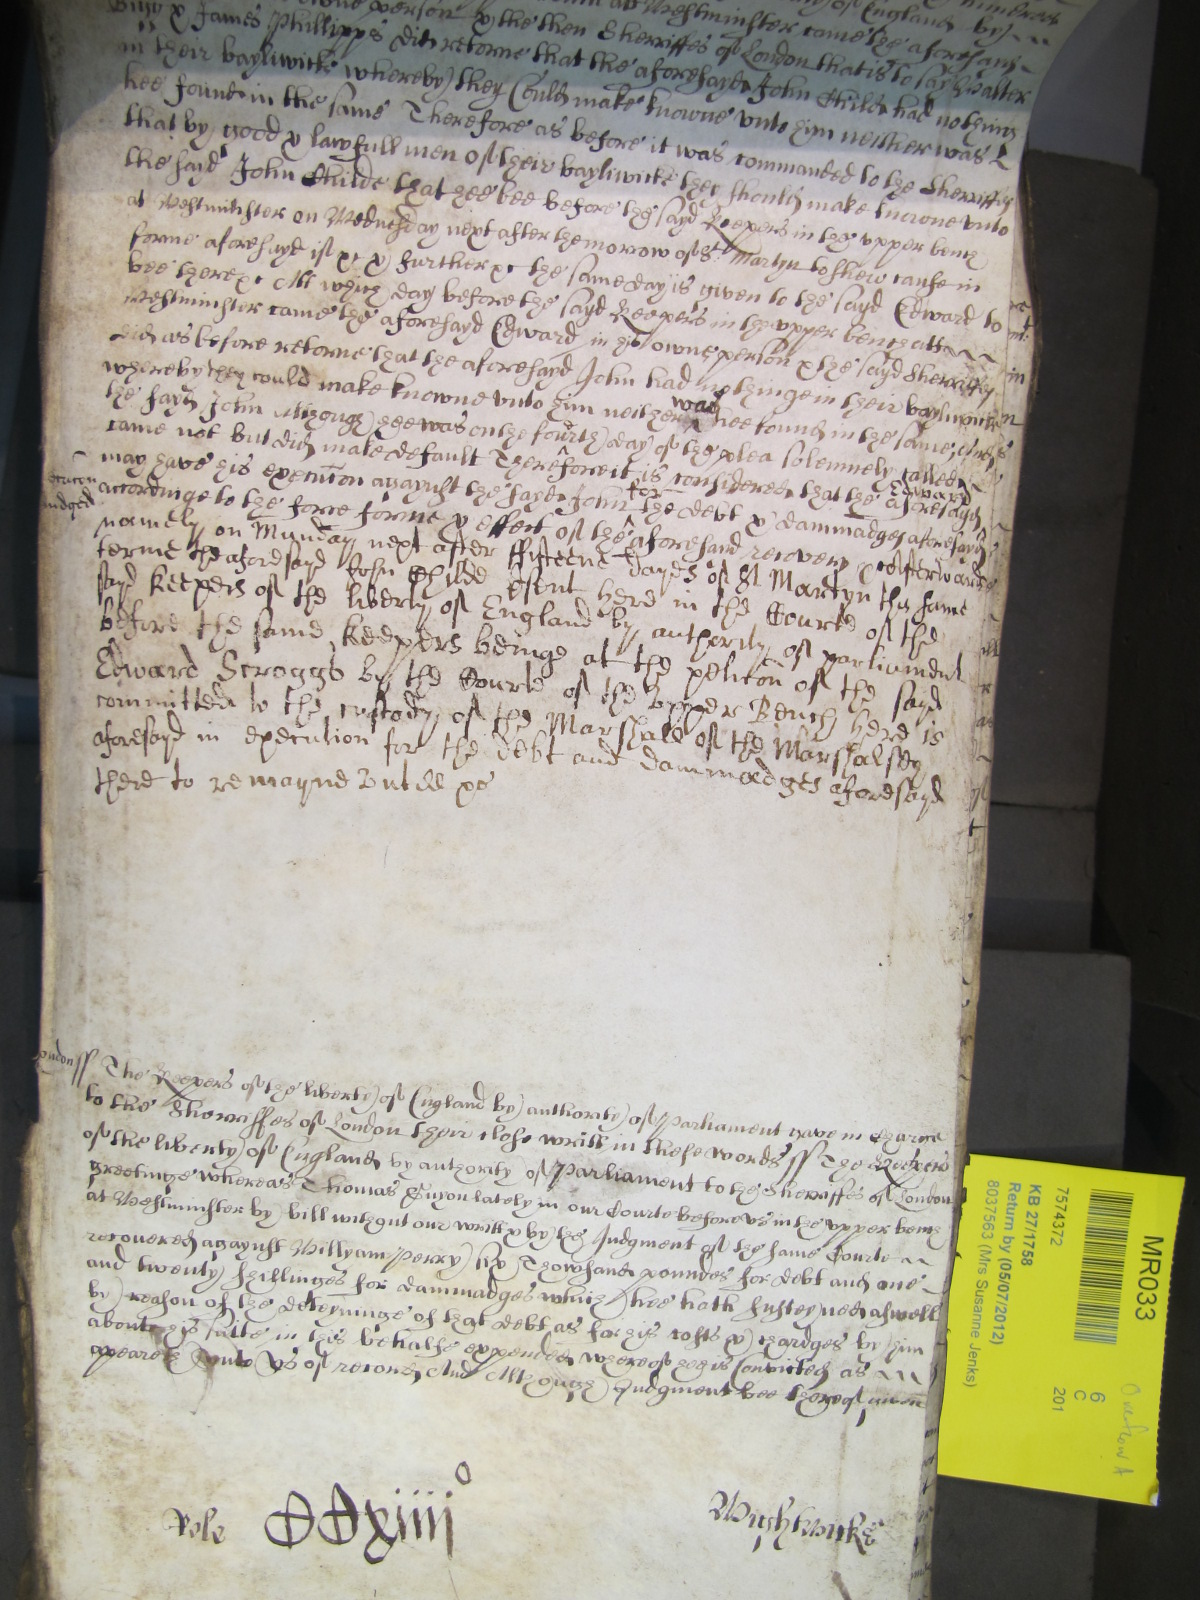 owne person & the then Sherriffes of London that is to say Walter
& James Phillipps did returne that the aforesayd John Childe had nothing
in their bayliwicke whereby they could make knowne unto him neither was
hee found in the same Therefore as before it was commanded to the Sherriffes
that by good & lawfull men of their bayliwicke they should make knowne unto
the sayd John Childe that hee bee before the sayd Keepers in the upper bench
at Westminster on Wednesday next after the morrow of St Martyn to shew cause in
forme aforesayd if &c & further &c the same day is given to the sayd Edward to
bee there &c Att which day before the sayd Keepers in the upper bench att
Westminster came the aforesayd Edward in his owne person & the sayd Sherriffes
did as before returne that the aforesayd John had nothinge in their bayliwicke
whereby they could make knowne unto him neither was hee found in the same
the sayd John Although hee was on the fourth day of the plea solemnely called
came not but did make default Therefore it is considered that the aforesayd Edward
may have his execucon agaynst the sayd John for the debt & dammadges aforesayd
accordinge to the force forme & effect of the aforesayd recovery &c Afterwards
namely on Munday next after fifteene dayes of St Martyn this same
terme the aforesayd John Childe Esent here in the Courte of the
sayd Keepers of the liberty of England by authority of parliament
before the same Keepers beinge at the peticon of the sayd
Edward Scroggs by the Courte of the Upper Bench here is
committed to the custody of the Marshall of the Marshalsey
aforesayd in execution for the debt and dammadges aforesayd
there to remayne Untill &c
London ss The Keepers of the liberty of England by authority of Parliament gave in charge
to the Sherriffes of London their close writt in these words ss The Keepers
of the liberty of England by authority of Parliament to the Sherriffes of London
greetinge whereas Thomas Guyon lately in our Courte before us in the upper bench
at Westminster by bill without our writt & by the Judgment of the same Courte
recovered agaynst Willyam Perry six Thowsand poundes for debt and one
and twenty shillinges for dammadges which hee hath susteyned aswell
by reason of the deteyninge of that debt as for his costs & chardges by him
about his suite in this behalfe expended whereof hee is convicted as
apeareth unto us of record And Although Judgment bee thereof given
Role CCxiiii o
Wightwicke
MR033
7574372
KB 27/1758
Return by (05/07/2012)
8037563 (Mrs Susanne Jenks)
6
C
201
Overflow A